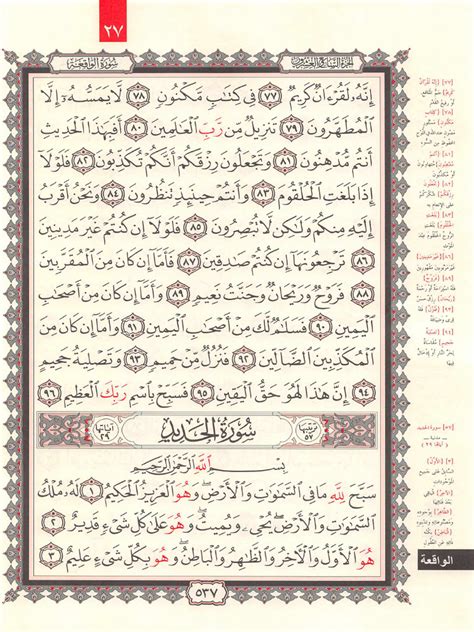 ٢٧
سورة الواقعة
الجزء السابع والعشرون
إِنَّهُ لَقُرْءَانٌ كَرِيمٌ ﴿٧٧﴾ فِي كِتَابٍ مَّكْنُونٍ ﴿٧٨﴾ لَّا يَمَسُّهُ إِلَّا
الْمُطَهَّرُونَ ﴿٧٩﴾ تَنزِيلٌ مِّن رَّبِّ الْعَالَمِينَ ﴿٨٠﴾ أَفَبِهَذَا الْحَدِيثِ
أَنتُم مُّدْهِنُونَ ﴿٨١﴾ وَتَجْعَلُونَ رِزْقَكُمْ أَنَّكُمْ تُكَذِّبُونَ ﴿٨٢﴾ فَلَوْلَا
إِذَا بَلَغَتِ الْحُلْقُومَ ﴿٨٣﴾ وَأَنتُمْ حِينَئِذٍ تَنظُرُونَ ﴿٨٤﴾ وَنَحْنُ أَقْرَبُ
إِلَيْهِ مِنكُمْ وَلَكِن لَّا تُبْصِرُونَ ﴿٨٥﴾ فَلَوْلَا إِن كُنتُمْ غَيْرَ مَدِينِينَ
﴿٨٦﴾ تَرْجِعُونَهَا إِن كُنتُمْ صَادِقِينَ ﴿٨٧﴾ فَأَمَّا إِن كَانَ مِنَ الْمُقَرَّبِينَ
﴿٨٨﴾ فَرَوْحٌ وَرَيْحَانٌ وَجَنَّتُ نَعِيمٍ ﴿٨٩﴾ وَأَمَّا إِن كَانَ مِنْ أَصْحَابِ
الْيَمِينِ ﴿٩٠﴾ فَسَلَامٌ لَّكَ مِنْ أَصْحَابِ الْيَمِينِ ﴿٩١﴾ وَأَمَّا إِن كَانَ مِنَ
الْمُكَذِّبِينَ الضَّالِّينَ ﴿٩٢﴾ فَنُزُلٌ مِّنْ حَمِيمٍ ﴿٩٣﴾ وَتَصْلِيَةُ جَحِيمٍ
﴿٩٤﴾ إِنَّ هَذَا لَهُوَ حَقُّ الْيَقِينِ ﴿٩٥﴾ فَسَبِّحْ بِاسْمِ رَبِّكَ الْعَظِيمِ ﴿٩٦﴾
ترتيبها ٥٧
سُورَةُ الْحَدِيدِ
آياتها ٢٩
بِسْمِ اللَّهِ الرَّحْمَنِ الرَّحِيمِ
سَبَّحَ لِلَّهِ مَا فِي السَّمَاوَاتِ وَالْأَرْضِ وَهُوَ الْعَزِيزُ الْحَكِيمُ ﴿١﴾ لَهُ مُلْكُ
السَّمَاوَاتِ وَالْأَرْضِ يُحْيِي وَيُمِيتُ وَهُوَ عَلَى كُلِّ شَيْءٍ قَدِيرٌ ﴿٢﴾
هُوَ الْأَوَّلُ وَالْآخِرُ وَالظَّاهِرُ وَالْبَاطِنُ وَهُوَ بِكُلِّ شَيْءٍ عَلِيمٌ ﴿٣﴾
٥٣٧
الواقعة